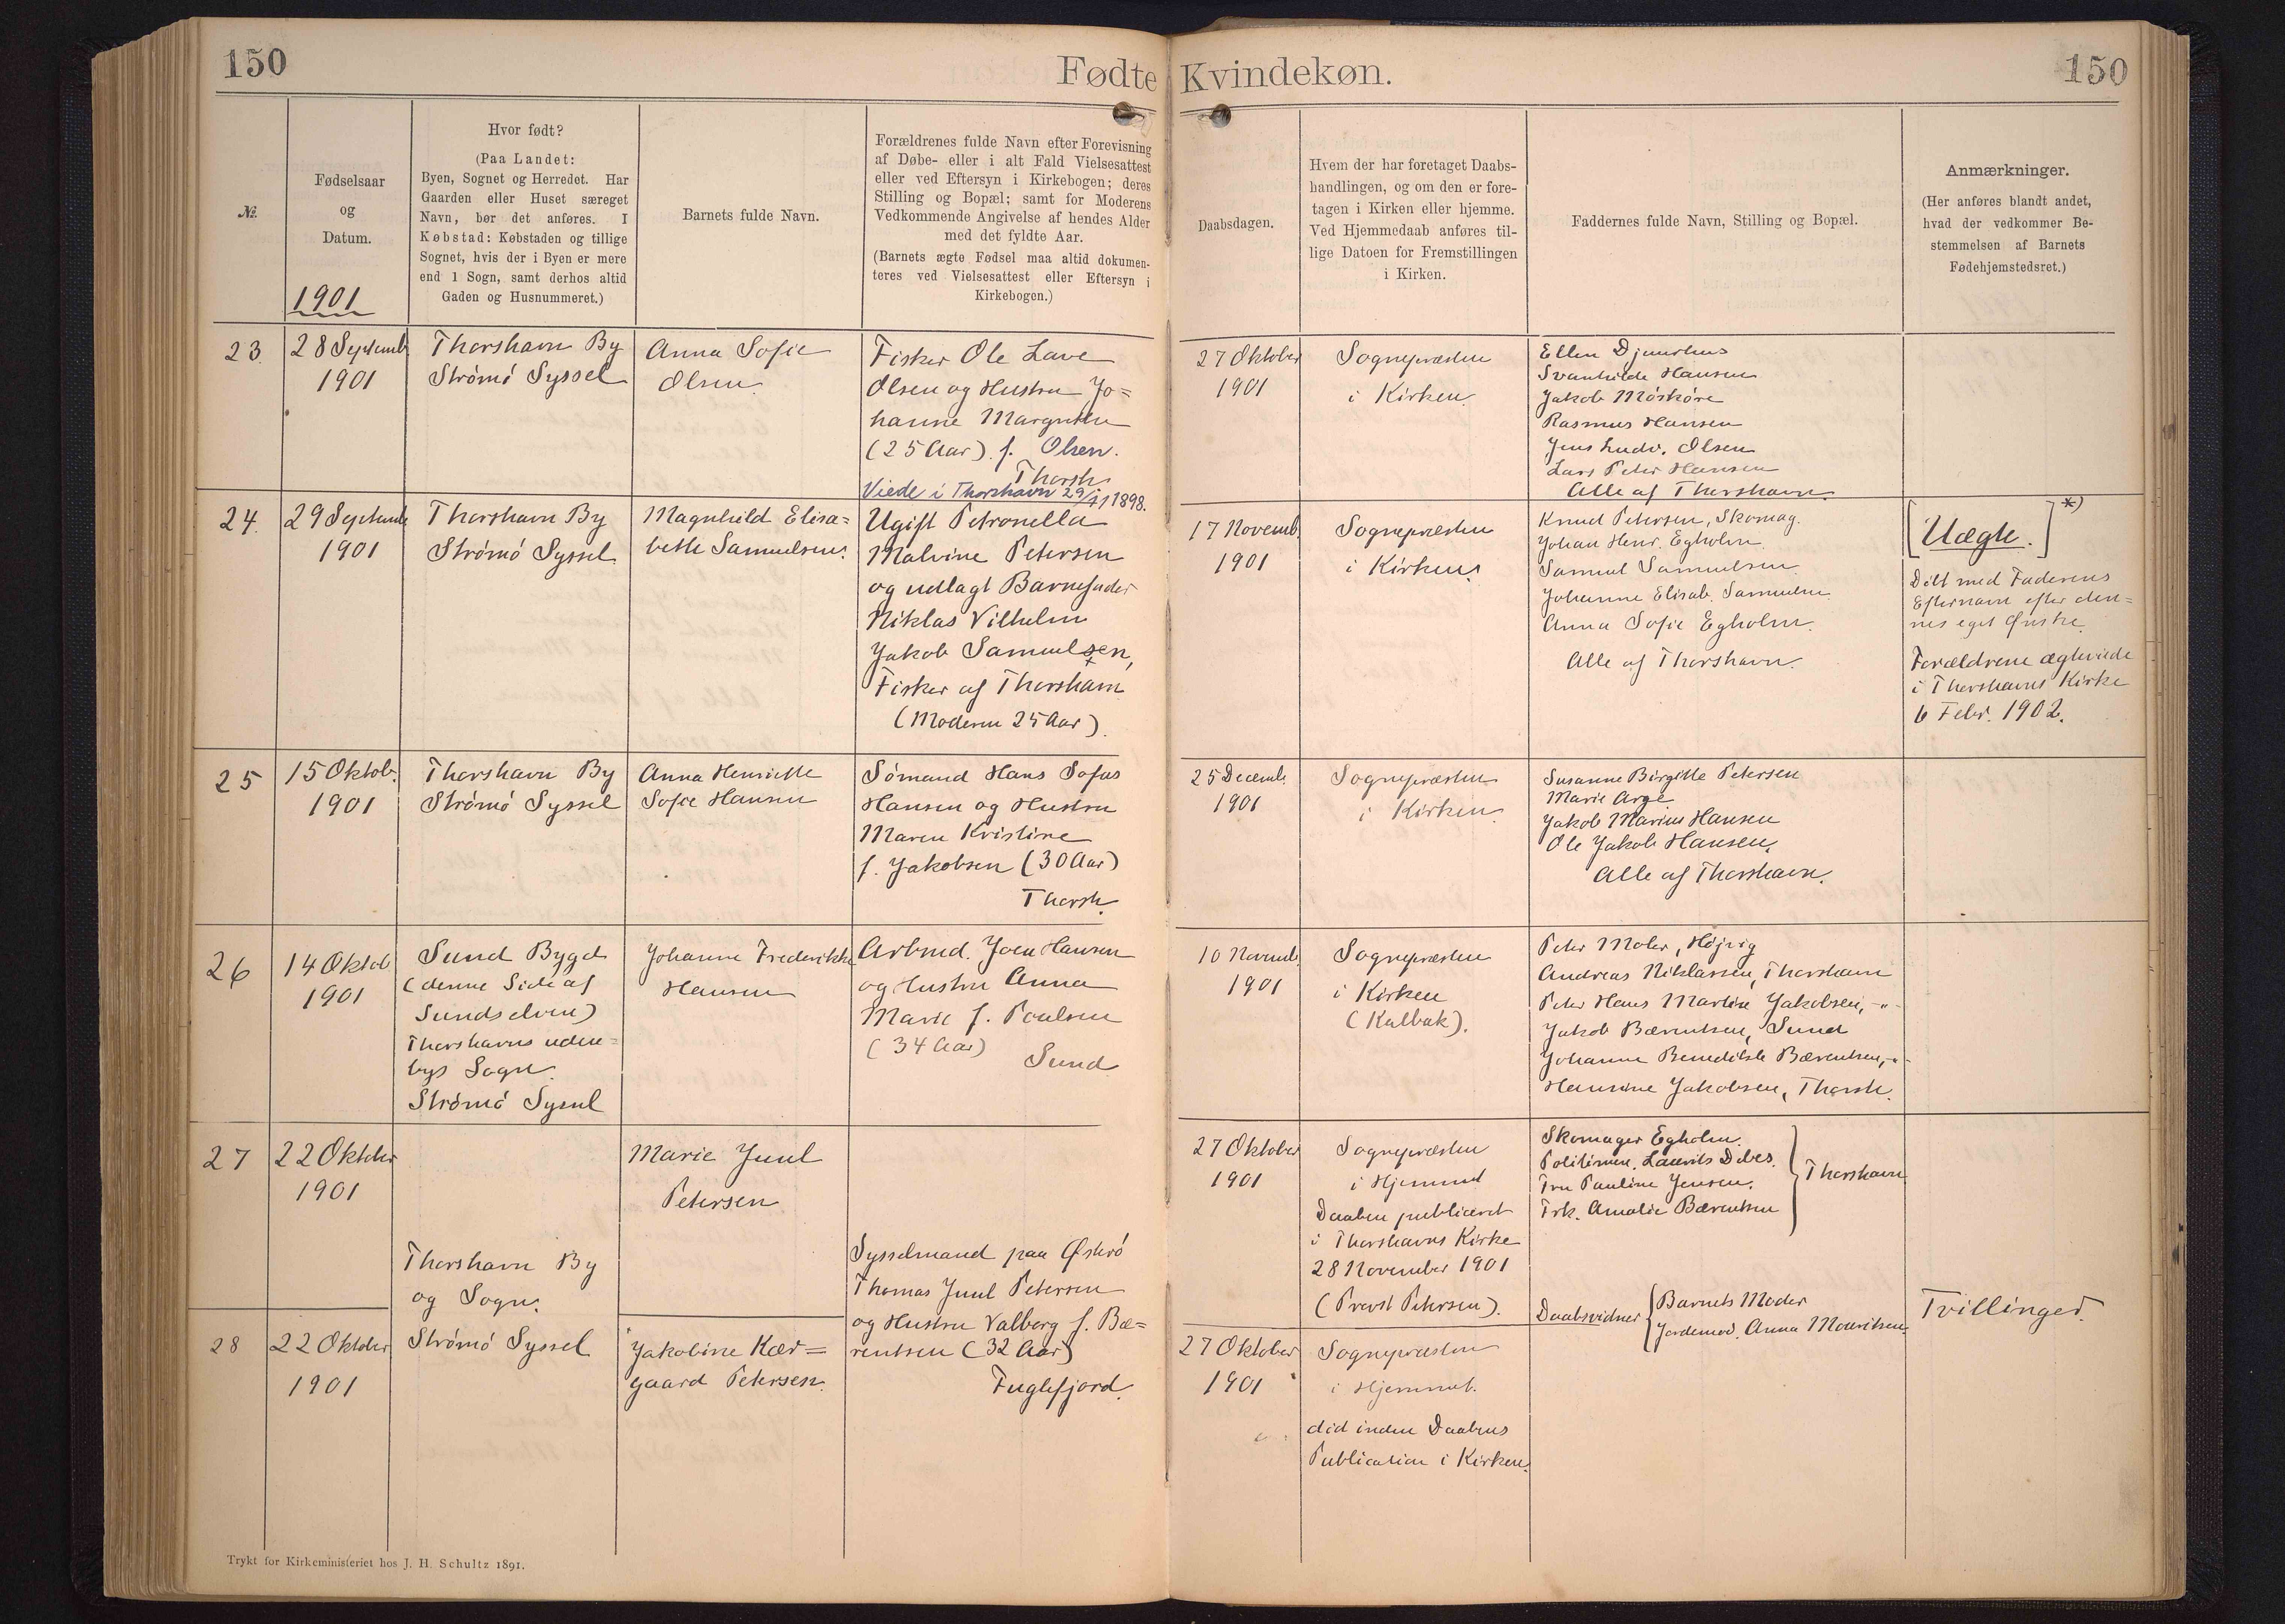 150
Fødte Kvindekøn.
150
№.
Fødselsaar
og
Datum.
1901
Hvor født?
(Paa Landet:
Byen, Sognet og Herredet. Har
Gaarden eller Huset særeget
Navn, bør det anføres. I
Købstad: Købstaden og tillige
Sognet, hvis der i Byen er mere
end 1 Sogn, samt derhos altid
Gaden og Husnummeret.)
Barnets fulde Navn.
Forældrenes fulde Navn efter Forevisning
af Døbe- eller i alt Fald Vielsesattest
eller ved Eftersyn i Kirkebogen; deres
Stilling og Bopæl; samt for Moderens
Vedkommende Angivelse af hendes Alder
med det fyldte Aar.
(Barnets ægte Fødsel maa altid dokumen-
teres ved Vielsesattest eller Eftersyn i
Kirkebogen.)
Daabsdagen.
Hvem der har foretaget Daabs-
handlingen, og om den er fore-
tagen i Kirken eller hjemme.
Ved Hjemmedaab anføres til-
lige Datoen for Fremstillingen
i Kirken.
Faddernes fulde Navn, Stilling og Bopæl.
Anmærkninger.
(Her anføres blandt andet,
hvad der vedkommer Be-
stemmelsen af Barnets
Fødehjemstedsret.)
23.
28 Septemb.
1901
Thorshavn By
Strømø Syssel
Anna Sofie
Olsen.
Fisker Ole Lave
Olsen og Hustru Jo=
hanne Margrethe
(25 Aar) f. Olsen.
Thorsh.
Viede i Thorshavn 29/11 1898.
27 Oktober
1901
Sognepræsten
i Kirken.
Ellen Djurhus
Svanhilde Hansen
Jakob Mørkøre
Rasmus Hansen
Jens Ludv. Olsen
Lars Peter Hansen
Alle af Thorshavn.
24.
29 Septemb.
1901
Thorshavn By
Strømø Syssel
Magnhild Elisa=
beth Samuelsen.
Ugift Petronella
Malvine Petersen
og udlagt Barnefader
Niklas Vilhelm
Jakob Samuelsen,
Fisker af Thorshavn
(Moderen 25 Aar).
17 Novemb.
1901
Sognepræsten
i Kirken.
Knud Petersen, Skomag.
Johan Henr. Egholm.
Samuel Samuelsen.
Johanne Elisab. Samuelsen.
Anna Sofie Egholm.
Alle af Thorshavn.
[Uægte.] *)
Døbt med Faderens
Efternavn efter den=
nes eget Ønske.
Forældrene ægteviede
i Thorshavns Kirke
6 Febr. 1902.
25
15 Oktob.
1901
Thorshavn By
Strømø Syssel
Anna Henriette
Sofie Hansen
Sømand Hans Sofus
Hansen og Hustru
Maren Kristine
f. Jakobsen (30 Aar)
Thorsh.
25 Decemb.
1901
Sognepræsten
i Kirken.
Susanne Birgitte Petersen
Marie Arge.
Jakob Marius Hansen
Ole Jakob Hansen.
Alle af Thorshavn.
26
14 Oktob.
1901
Sund Bygd
(denne Side af
Sundselven)
Thorshavns uden=
bys Sogn.
Strømø Syssel
Johanne Frederikke
Hansen
Arbmd. Joen Hansen
og Hustru Anna
Marie f. Poulsen
(34 Aar)
Sund
10 Novemb.
1901
Sognepræsten
i Kirken
(Kalbak).
Peter Mohr, Højvig
Andreas Niklassen, Thorshavn
Peter Hans Martin Jakobsen, -"-
Jakob Bærentsen, Sund
Johanne Benedikte Bærentsen, -"-
Hansine Jakobsen, Thorsh.
27
22 Oktober
1901
Marie Juul
Petersen
27 Oktober
1901
Sognepræsten
i Hjemmet
Daaben publiceret
i Thorshavns Kirke
28 November 1901
(Provst Petersen).
Skomager Egholm.
Politimn. Laurits Debes.
Fru Pauline Jensen.
Frk. Amalie Bærentsen
Thorshavn
Thorshavn By
og Sogn.
Strømø Syssel
Sysselmand paa Østerø
Thomas Juul Petersen
og Hustru Valborg f. Bæ=
rentsen (32 Aar)
Fuglefjord.
Daabsvidner
Barnets Moder
Jordemod. Anna Mouritsen.
Tvillinger.
28
22 Oktober
1901
Jakobine Kær=
gaard Petersen.
27 Oktober
1901
Sognepræsten
i Hjemmet.
død inden Daabens
Publication i Kirken.
Trykt for Kirkeministeriet hos J. H. Schultz 1891.